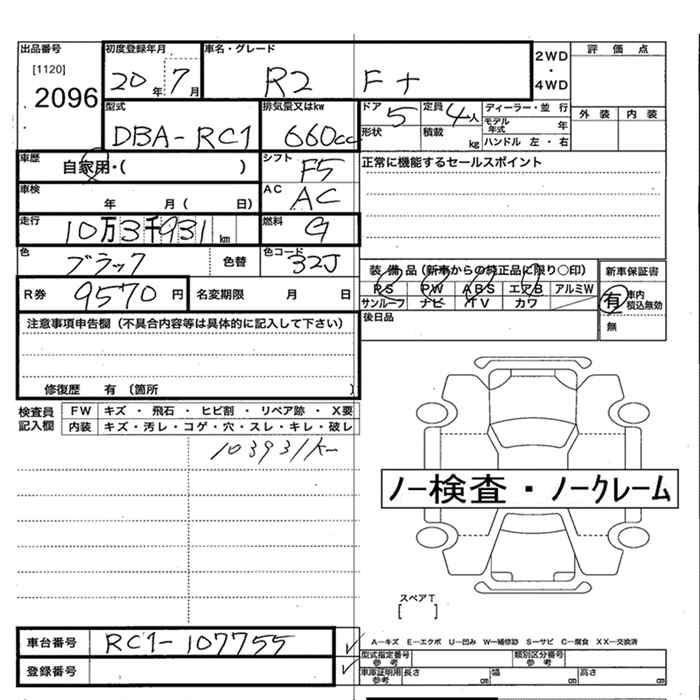 出品番号 初度登録年月 車名・グレード 2WD・4WD 評価点
[1120]
2096
20年 7月 R2 F+
外装 内装
型式 排気量又はkw ドア 定員 ディーラー・並行
DBA-RC1 660cc 5 4人
モデル年式 年
形状 積載 kg ハンドル 左・右
車歴 自家用・( ) シフト F5 正常に機能するセールスポイント
車検 年 月( 日) AC AC
走行 10万3千931km 燃料 G
色 ブラック 色替 色コード 32J
装備品(新車からの純正品に限り○印) 新車保証書
PS PW ABS エアB アルミW
サンルーフ ナビ TV カワ
有 車内積込無効
無
R券 9570円 名変期限 月 日
後日品
注意事項申告欄(不具合内容等は具体的に記入して下さい)
修復歴 有 〔箇所 〕
検査員記入欄 FW キズ・飛石・ヒビ割・リペア跡・X要
内装 キズ・汚レ・コゲ・穴・スレ・キレ・破レ
103931K
ノー検査・ノークレーム
スペアT
[ ]
車台番号 RC1-107755
登録番号
A―キズ E―エクボ U―凹み W―補修跡 S―サビ C―腐食 XX―交換済
型式指定番号 参考 類別区分番号 参考
車庫証明用 参考 長さ cm 幅 cm 高さ cm